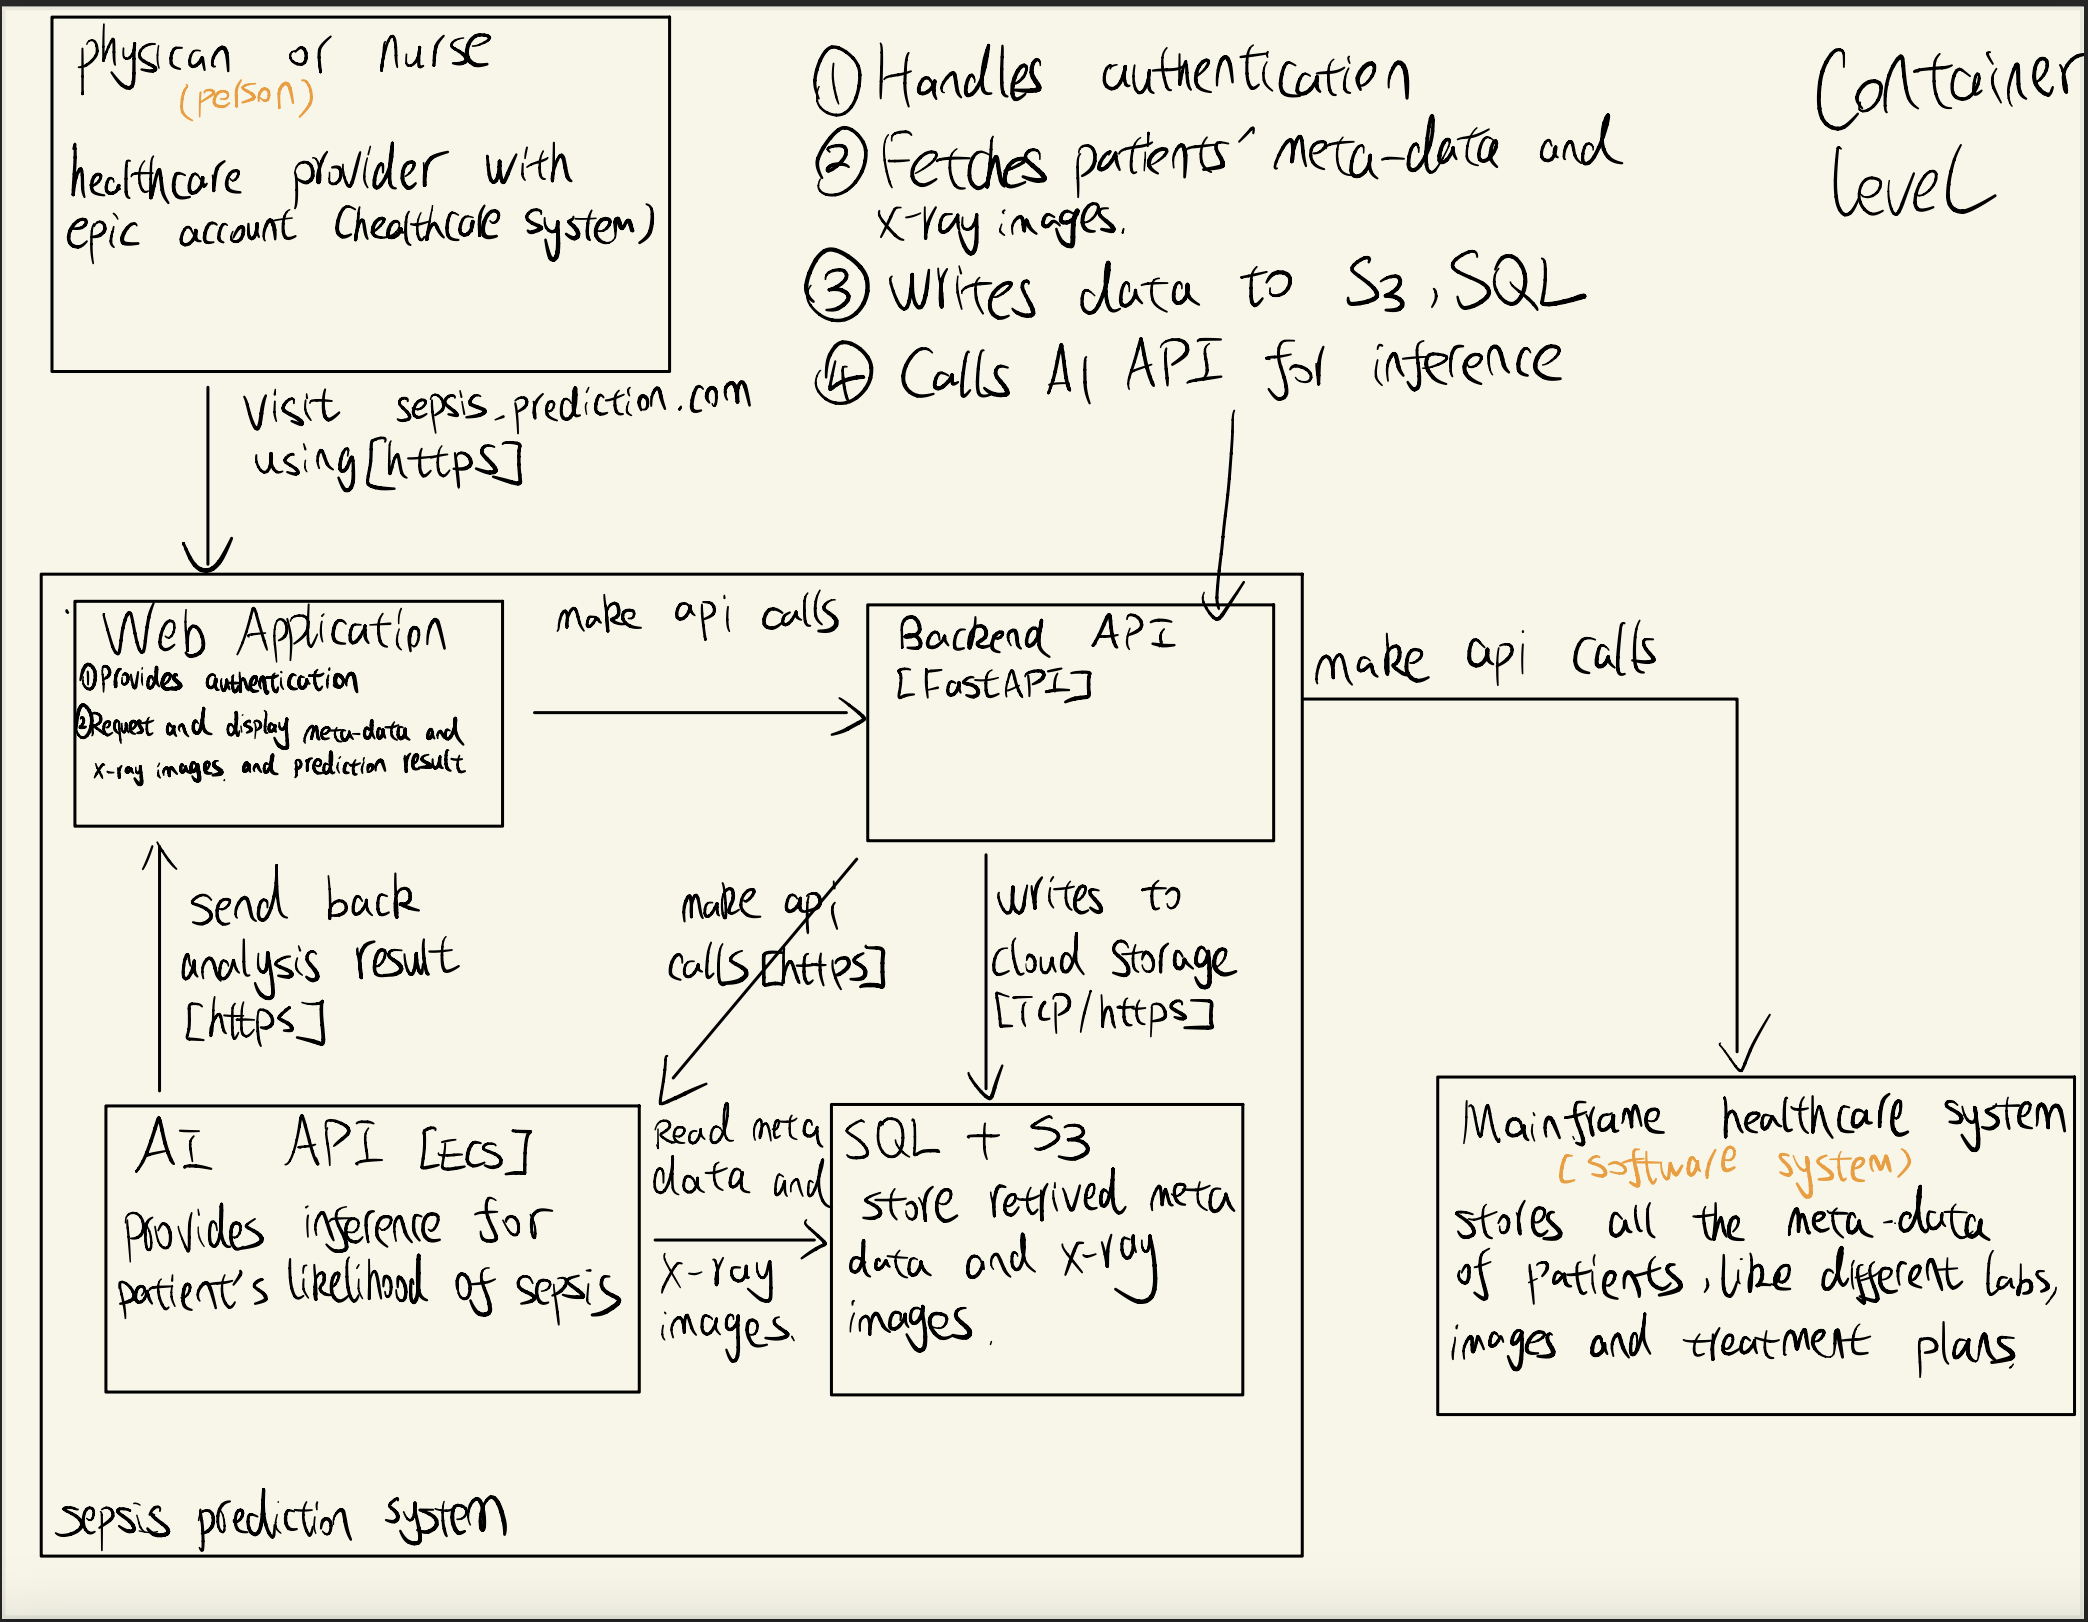 physican or nurse
(person)
healthcare provider with
epic account (healthcare system)
① Handles authentication
② Fetches patients' meta-data and
x-ray images.
③ writes data to S3, SQL
④ Calls AI API for inference
Container
level
Visit sepsis_prediction.com
using [https]
Web Application
① Provides authentication
② Request and display meta-data and
x-ray images. and prediction result
make api calls
Backend API
[FastAPI]
make api calls
send back
analysis result
[https]
make api
calls [https]
writes to
cloud storage
[TCP/https]
AI API [ECS]
provides inference for
patient's likelihood of sepsis
Read meta
data and
x-ray
images.
SQL + S3
store retrived meta
data and x-ray
images.
Mainframe healthcare system
(software system)
stores all the meta-data
of patients, like different labs,
images and treatment plans.
sepsis prediction system